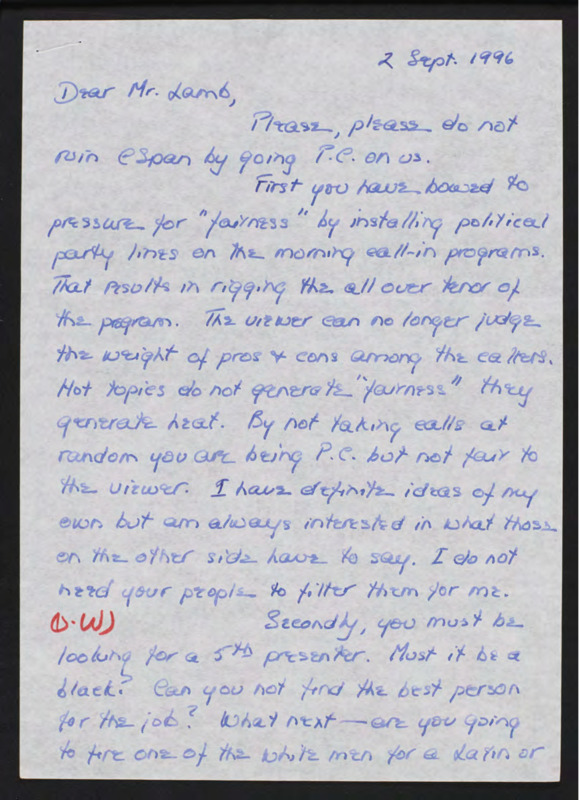 2 Sept. 1996
Dear Mr. Lamb,
Please, please do not
ruin CSpan by going P.C. on us.
First you have bowed to
pressure for "fairness" by installing political
party lines on the morning call-in programs.
That results in rigging the all over tenor of
the program. The viewer can no longer judge
the weight of pros & cons among the callers.
Hot topics do not generate "fairness" they
generate heat. By not taking calls at
random you are being P.C. but not fair to
the viewer. I have definite ideas of my
own but am always interested in what those
on the other side have to say. I do not
need your people to filter them for me.
Secondly, you must be
looking for a 5th presenter. Must it be a
black? Can you not find the best person
for the job? What next — are you going
to fire one of the white men for a Latin or